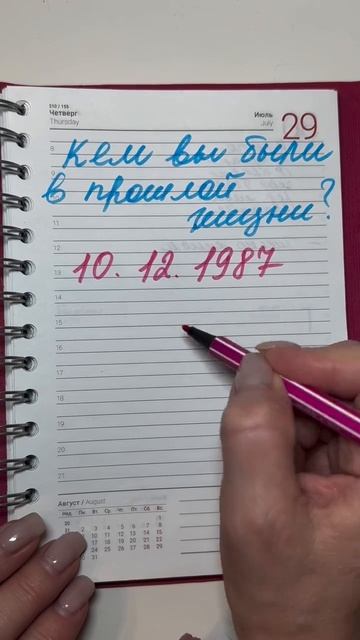 210 / 155
Четверг
Thursday
Июль
July
29
Кем вы были
в прошлой
жизни?
10. 12. 1987
8
9
11
12
13
14
15
16
17
18
19
20
21
Август / August
Нед. Пн. Вт. Ср. Чт. Пт. Сб. Вс.
30 1
2 3 4 5 6 7 8
10 11 12 13 14 15
17 18 19 20 21 22
24 25 26 27 28 29
31